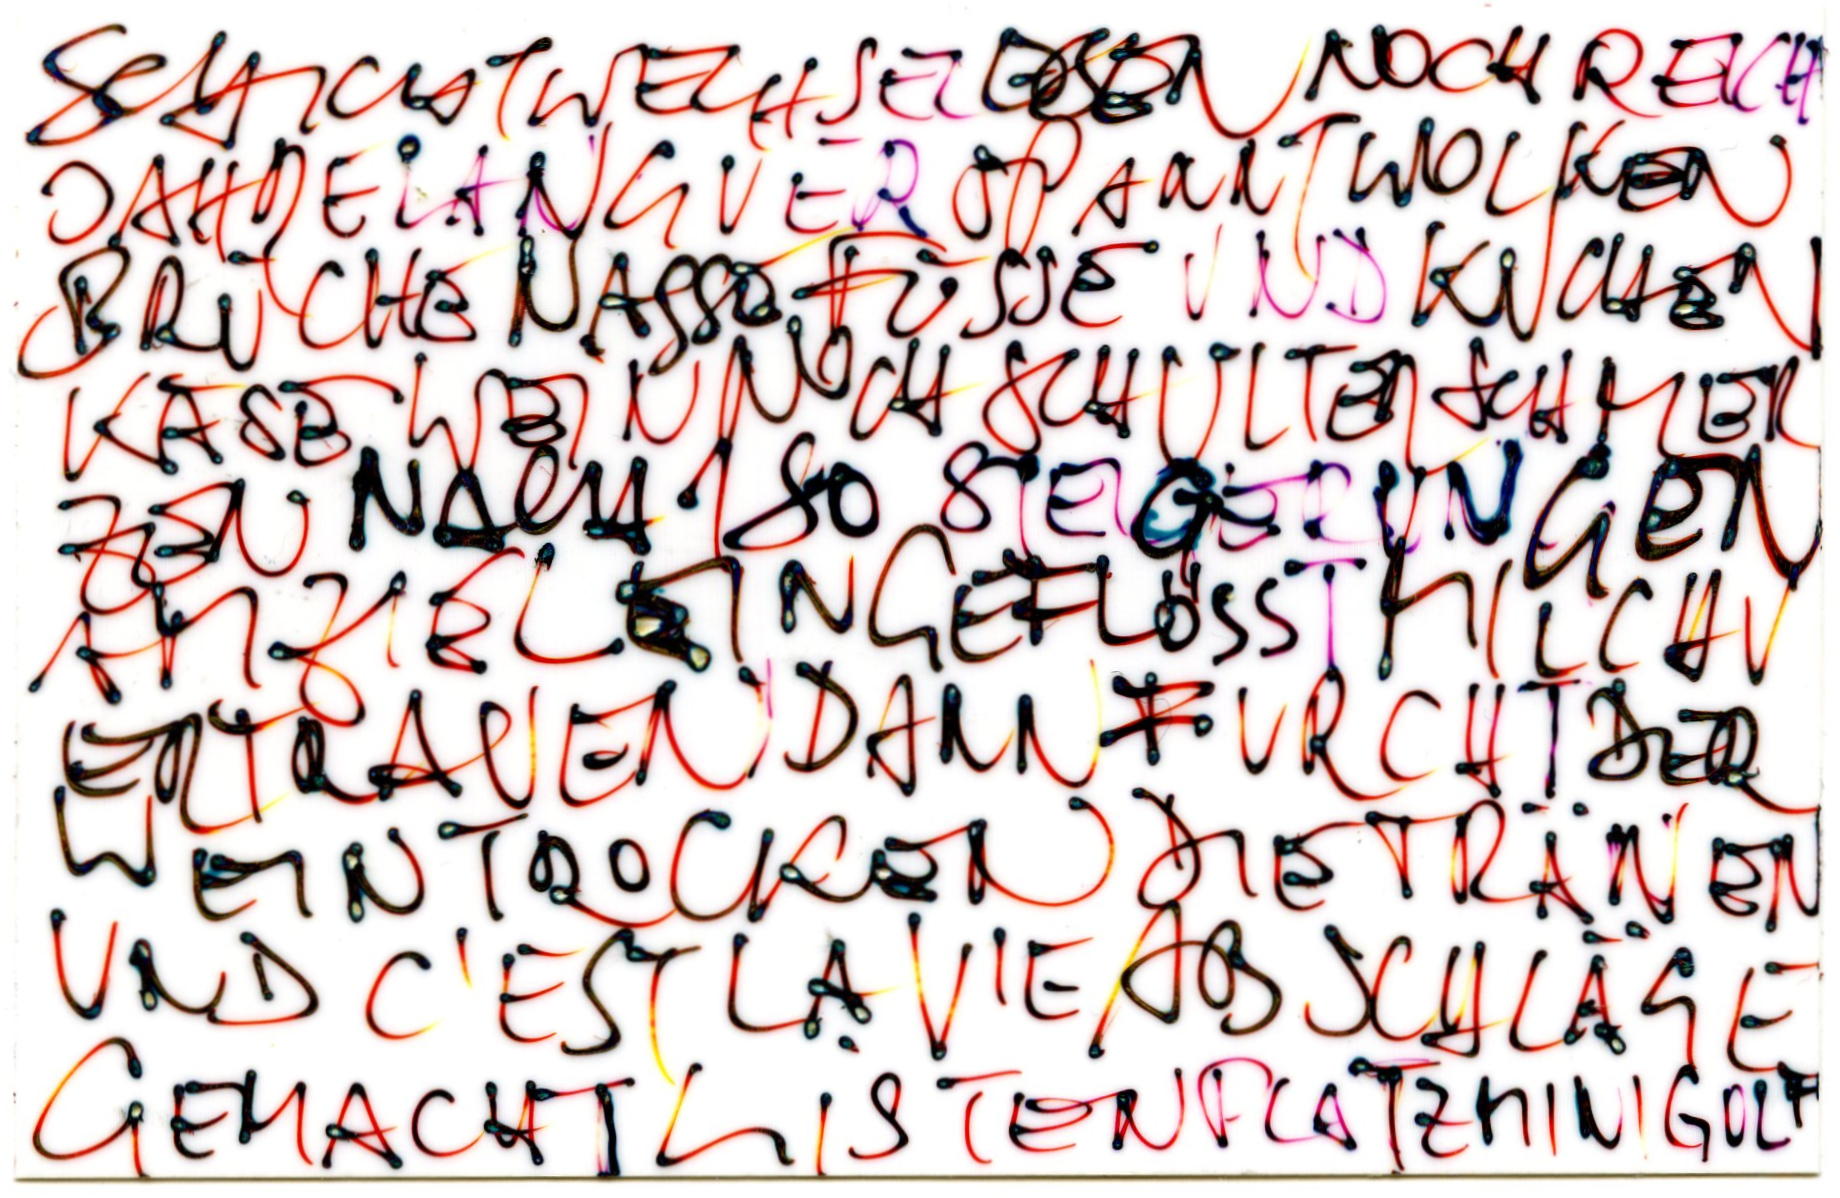 SCHICHTWECHSEL EBEN NOCH REICH
JAHRELANG VERSPANNT WOLKEN
BRÜCHE NASSE FÜSSE UND KUCHEN
KÄSE WEIN NOCH SCHULTERSCHMER
ZEN NACH SO STEIGERUNGEN
AM ZIEL EINGEFLÖSST MILCH V
ERTRAUEN DANN FURCHT DER
WEIN TROCKEN DIE TRÄNEN
UND C'EST LA VIE ABSCHLÄGE
GEMACHT LISTENPLATZ MINIGOLF